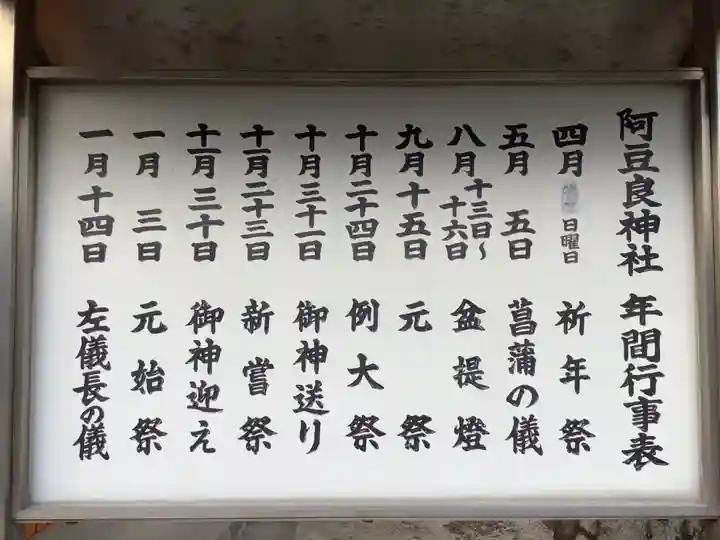 阿豆良神社 年間行事表
四月 日曜日 祈年祭
五月 五日 菖蒲の儀
八月 十三日〜十六日 盆提燈
九月十五日 元祭
十月二十四日 例大祭
十月三十一日 御神送り
十一月二十三日 新嘗祭
十一月三十日 御神迎え
一月 三日 元始祭
一月十四日 左儀長の儀